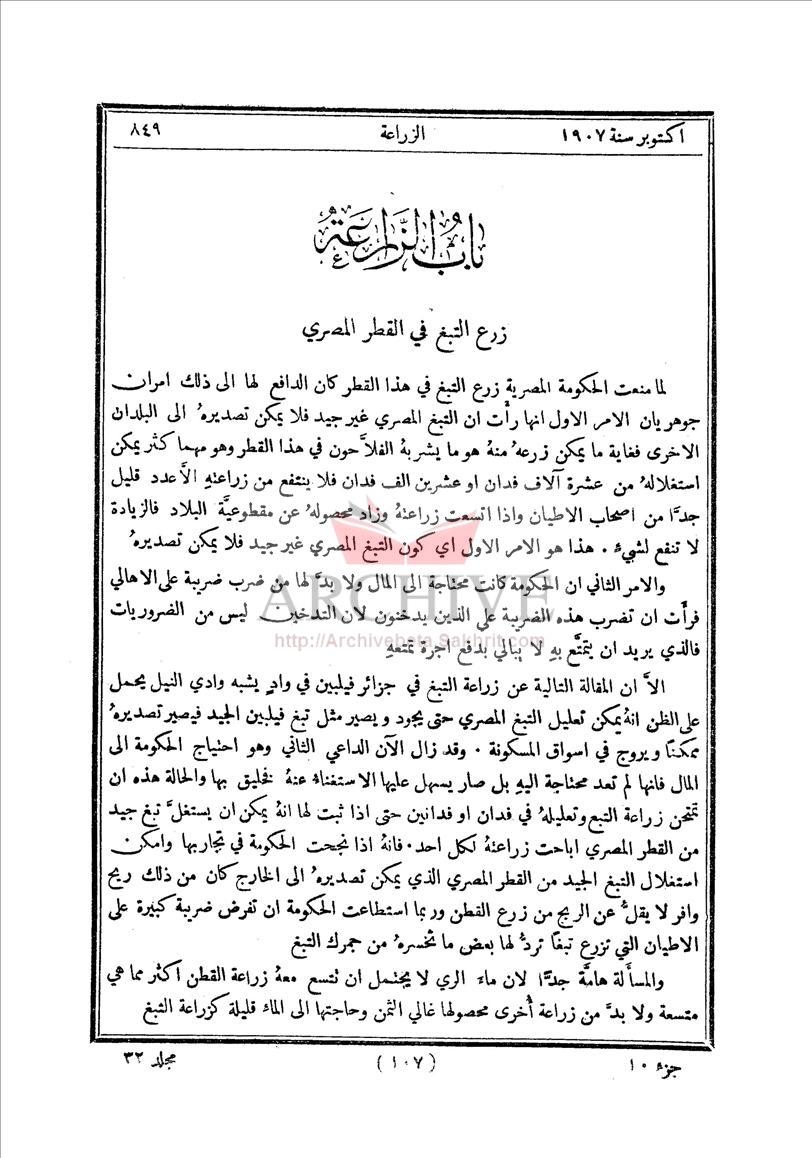 اكتوبر سنة ١٩٠٧ الزراعة ٨٤٩
باب الزراعة
زرع التبغ في القطر المصري
لما منعت الحكومة المصرية زرع التبغ في هذا القطر كان الدافع لها الى ذلك امران
جوهريان الامر الاول انها رأت ان التبغ المصري غير جيد فلا يمكن تصديرهُ الى البلدان
الاخرى فغاية ما يمكن زرعهُ منهُ هو ما يشربهُ الفلاَّحون في هذا القطر وهو مهما كثر يمكن
استغلالهُ من عشرة آلاف فدان او عشرين الف فدان فلا ينتفع من زراعتهِ الاَّ عدد قليل
جدًّا من اصحاب الاطيان واذا اتسعت زراعتهُ وزاد محصولهُ عن مقطوعيَّة البلاد فالزيادة
لا تنفع لشيء . هذا هو الامر الاول اي كون التبغ المصري غير جيد فلا يمكن تصديرهُ
والامر الثاني ان الحكومة كانت محتاجة الى المال ولا بدَّ لها من ضرب ضريبة على الاهالي
فرأت ان تضرب هذه الضريبة على الذين يدخنون لان التدخين ليس من الضروريات
فالذي يريد ان يتمتَّع بهِ لا يبالي بدفع اجرة تمتعهِ
ARCHIVE
http://Archivebeta.Sakhrit.com
الاَّ ان المقالة التالية عن زراعة التبغ في جزائر فيلبين في وادٍ يشبه وادي النيل يحمل
على الظن انهُ يمكن تعليل التبغ المصري حتى يجود ويصير مثل تبغ فيلبين الجيد فيصير تصديرهُ
ممكنًا ويروج في اسواق المسكونة . وقد زال الآن الداعي الثاني وهو احتياج الحكومة الى
المال فانها لم تعد محتاجة اليهِ بل صار يسهل عليها الاستغناءُ عنهُ فخليق بها والحالة هذه ان
تمتحن زراعة التبغ وتعليلهُ في فدان او فدانين حتى اذا ثبت لها انهُ يمكن ان يستغلَّ تبغ جيد
من القطر المصري اباحت زراعتهُ لكل احد . فانهُ اذا نجحت الحكومة في تجاربها وامكن
استغلال التبغ الجيد من القطر المصري الذي يمكن تصديرهُ الى الخارج كان من ذلك ربح
وافر لا يقلُّ عن الربح من زرع القطن وربما استطاعت الحكومة ان تفرض ضريبة كبيرة على
الاطيان التي تزرع تبغًا تردُّ لها بعض ما تخسرهُ من جمرك التبغ
والمسألة هامَّة جدًّا لان ماء الري لا يحتمل ان تتسع معهُ زراعة القطن اكثر مما هي
متسعة ولا بدَّ من زراعة أُخرى محصولها غالي الثمن وحاجتها الى الماء قليلة كزراعة التبغ
جزء ١٠ (١٠٧) مجلد ٣٢